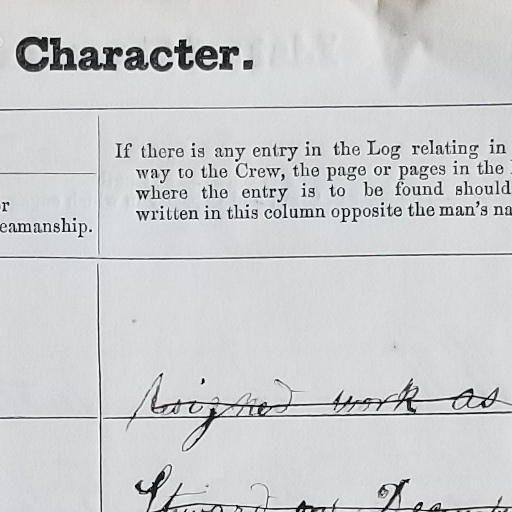 Character.
If there is any entry in the Log relating in
way to the Crew, the page or pages in the
where the entry is to be found should
written in this column opposite the man's na
r
eamanship.
Asigned work as
Steward on